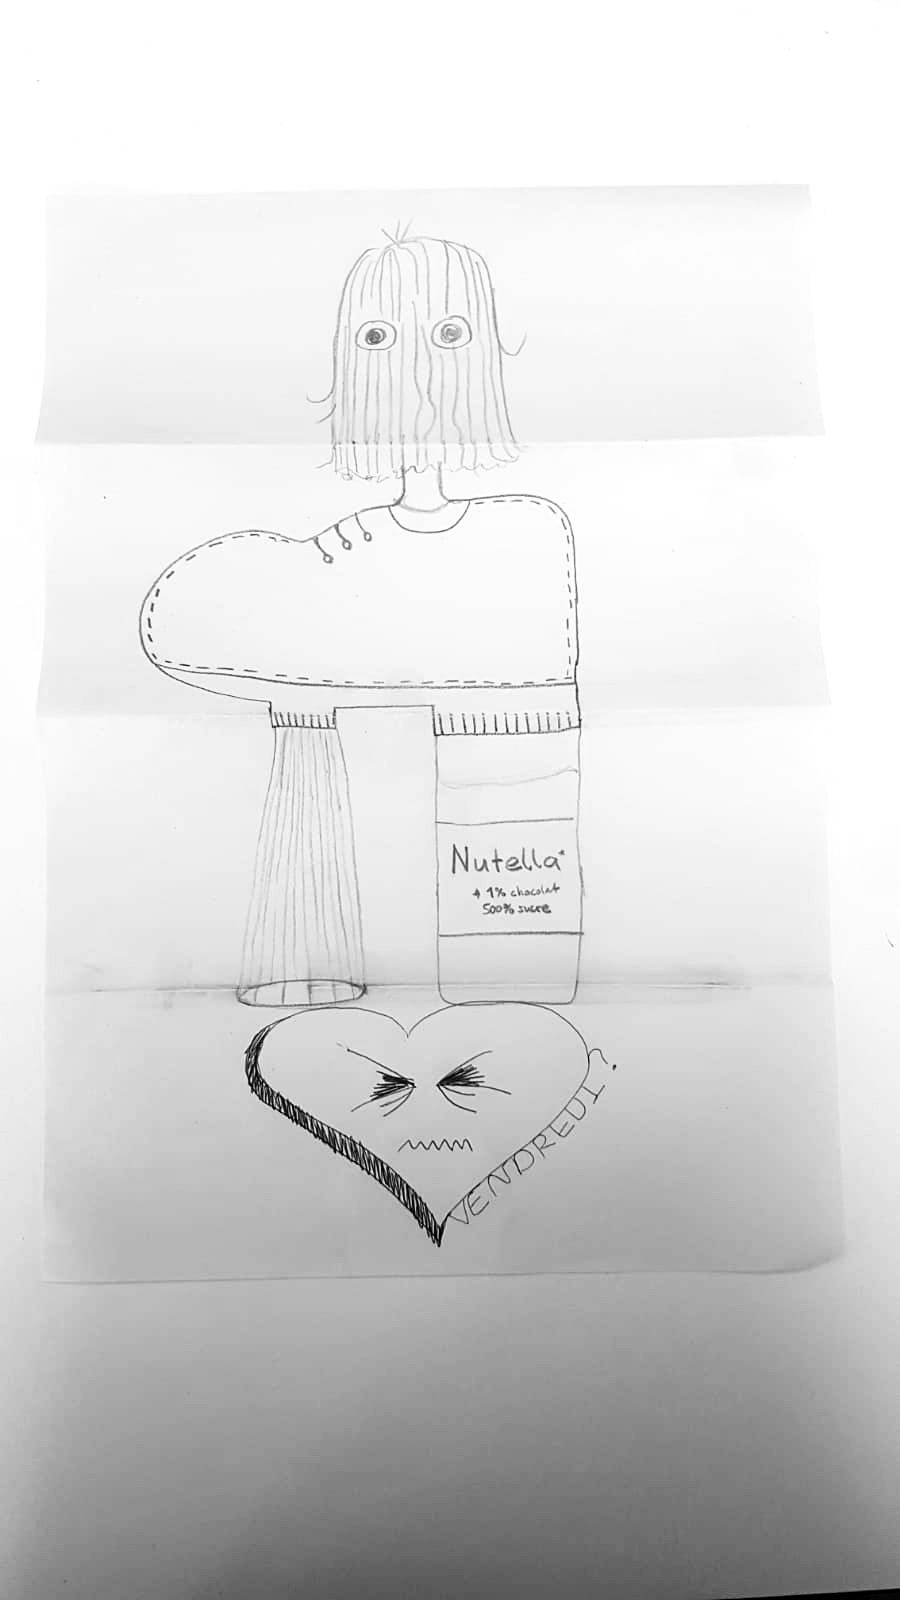 Nutella*
* 1% chocolat
500% sucre
VENDREDI?